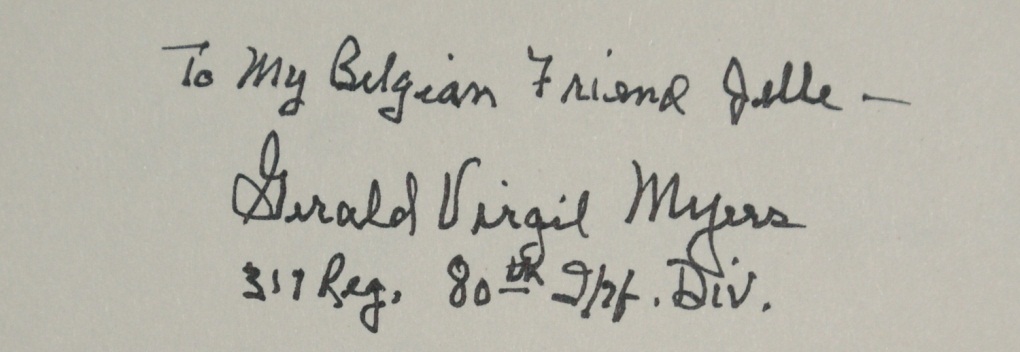 To My Belgian Friend Jelle —
Gerald Virgil Myers
317 Reg. 80th Inf. Div.